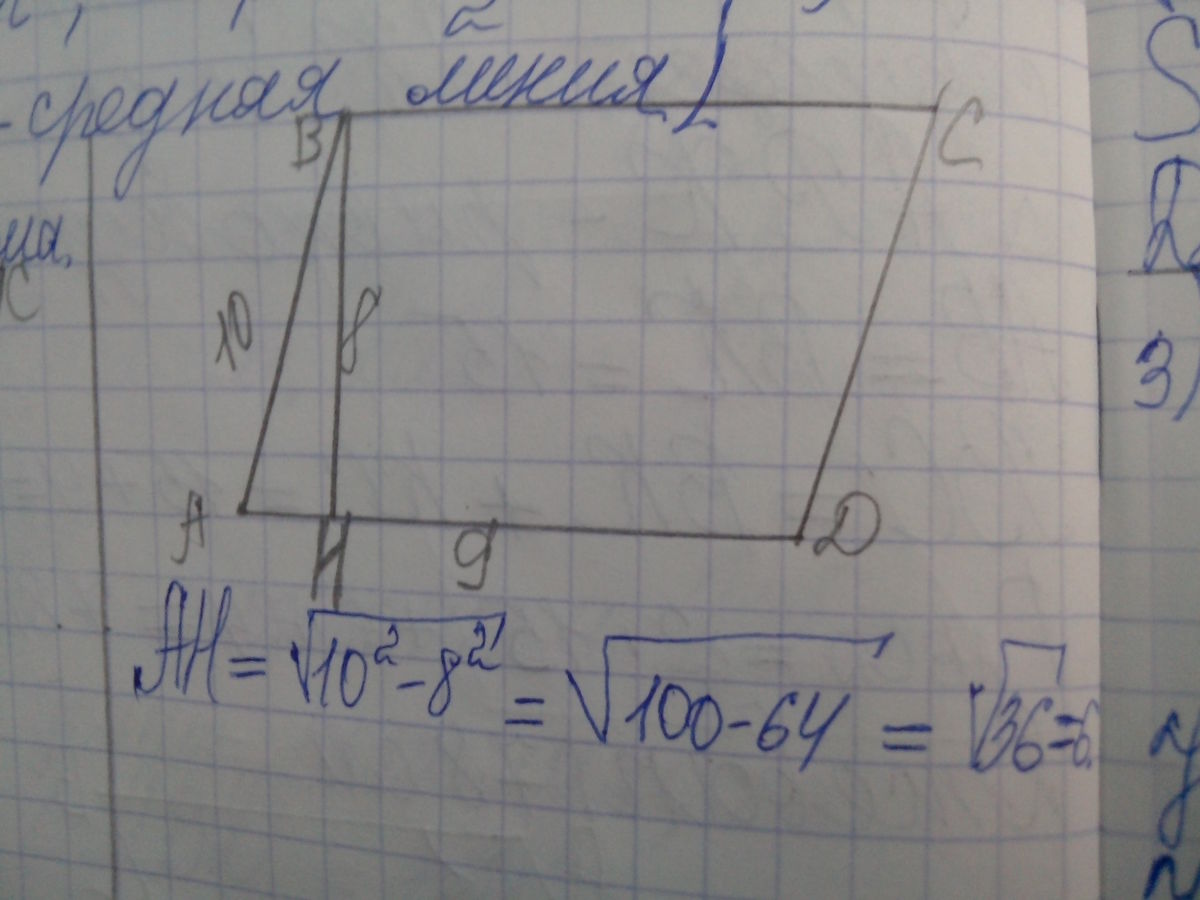 - средная линия
B
C
10
8
A
H
9
D
AH = √10² - 8² = √100 - 64 = √36 = 6.
3)